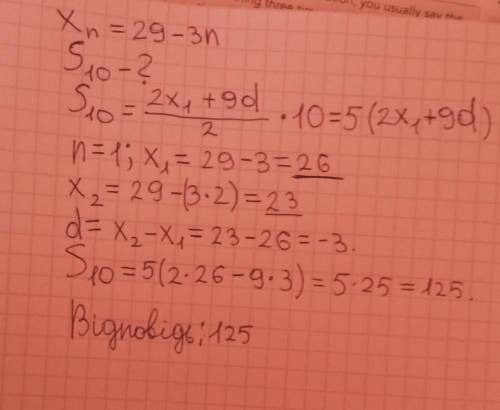 ing three tim
ion, you usually say the
Xn = 29 - 3n
S10 - ?
S10 = (2x1 + 9d)/2 · 10 = 5(2x1 + 9d)
n = 1; x1 = 29 - 3 = 26
x2 = 29 - (3·2) = 23
d = x2 - x1 = 23 - 26 = -3.
S10 = 5(2·26 - 9·3) = 5·25 = 125.
Відповідь: 125